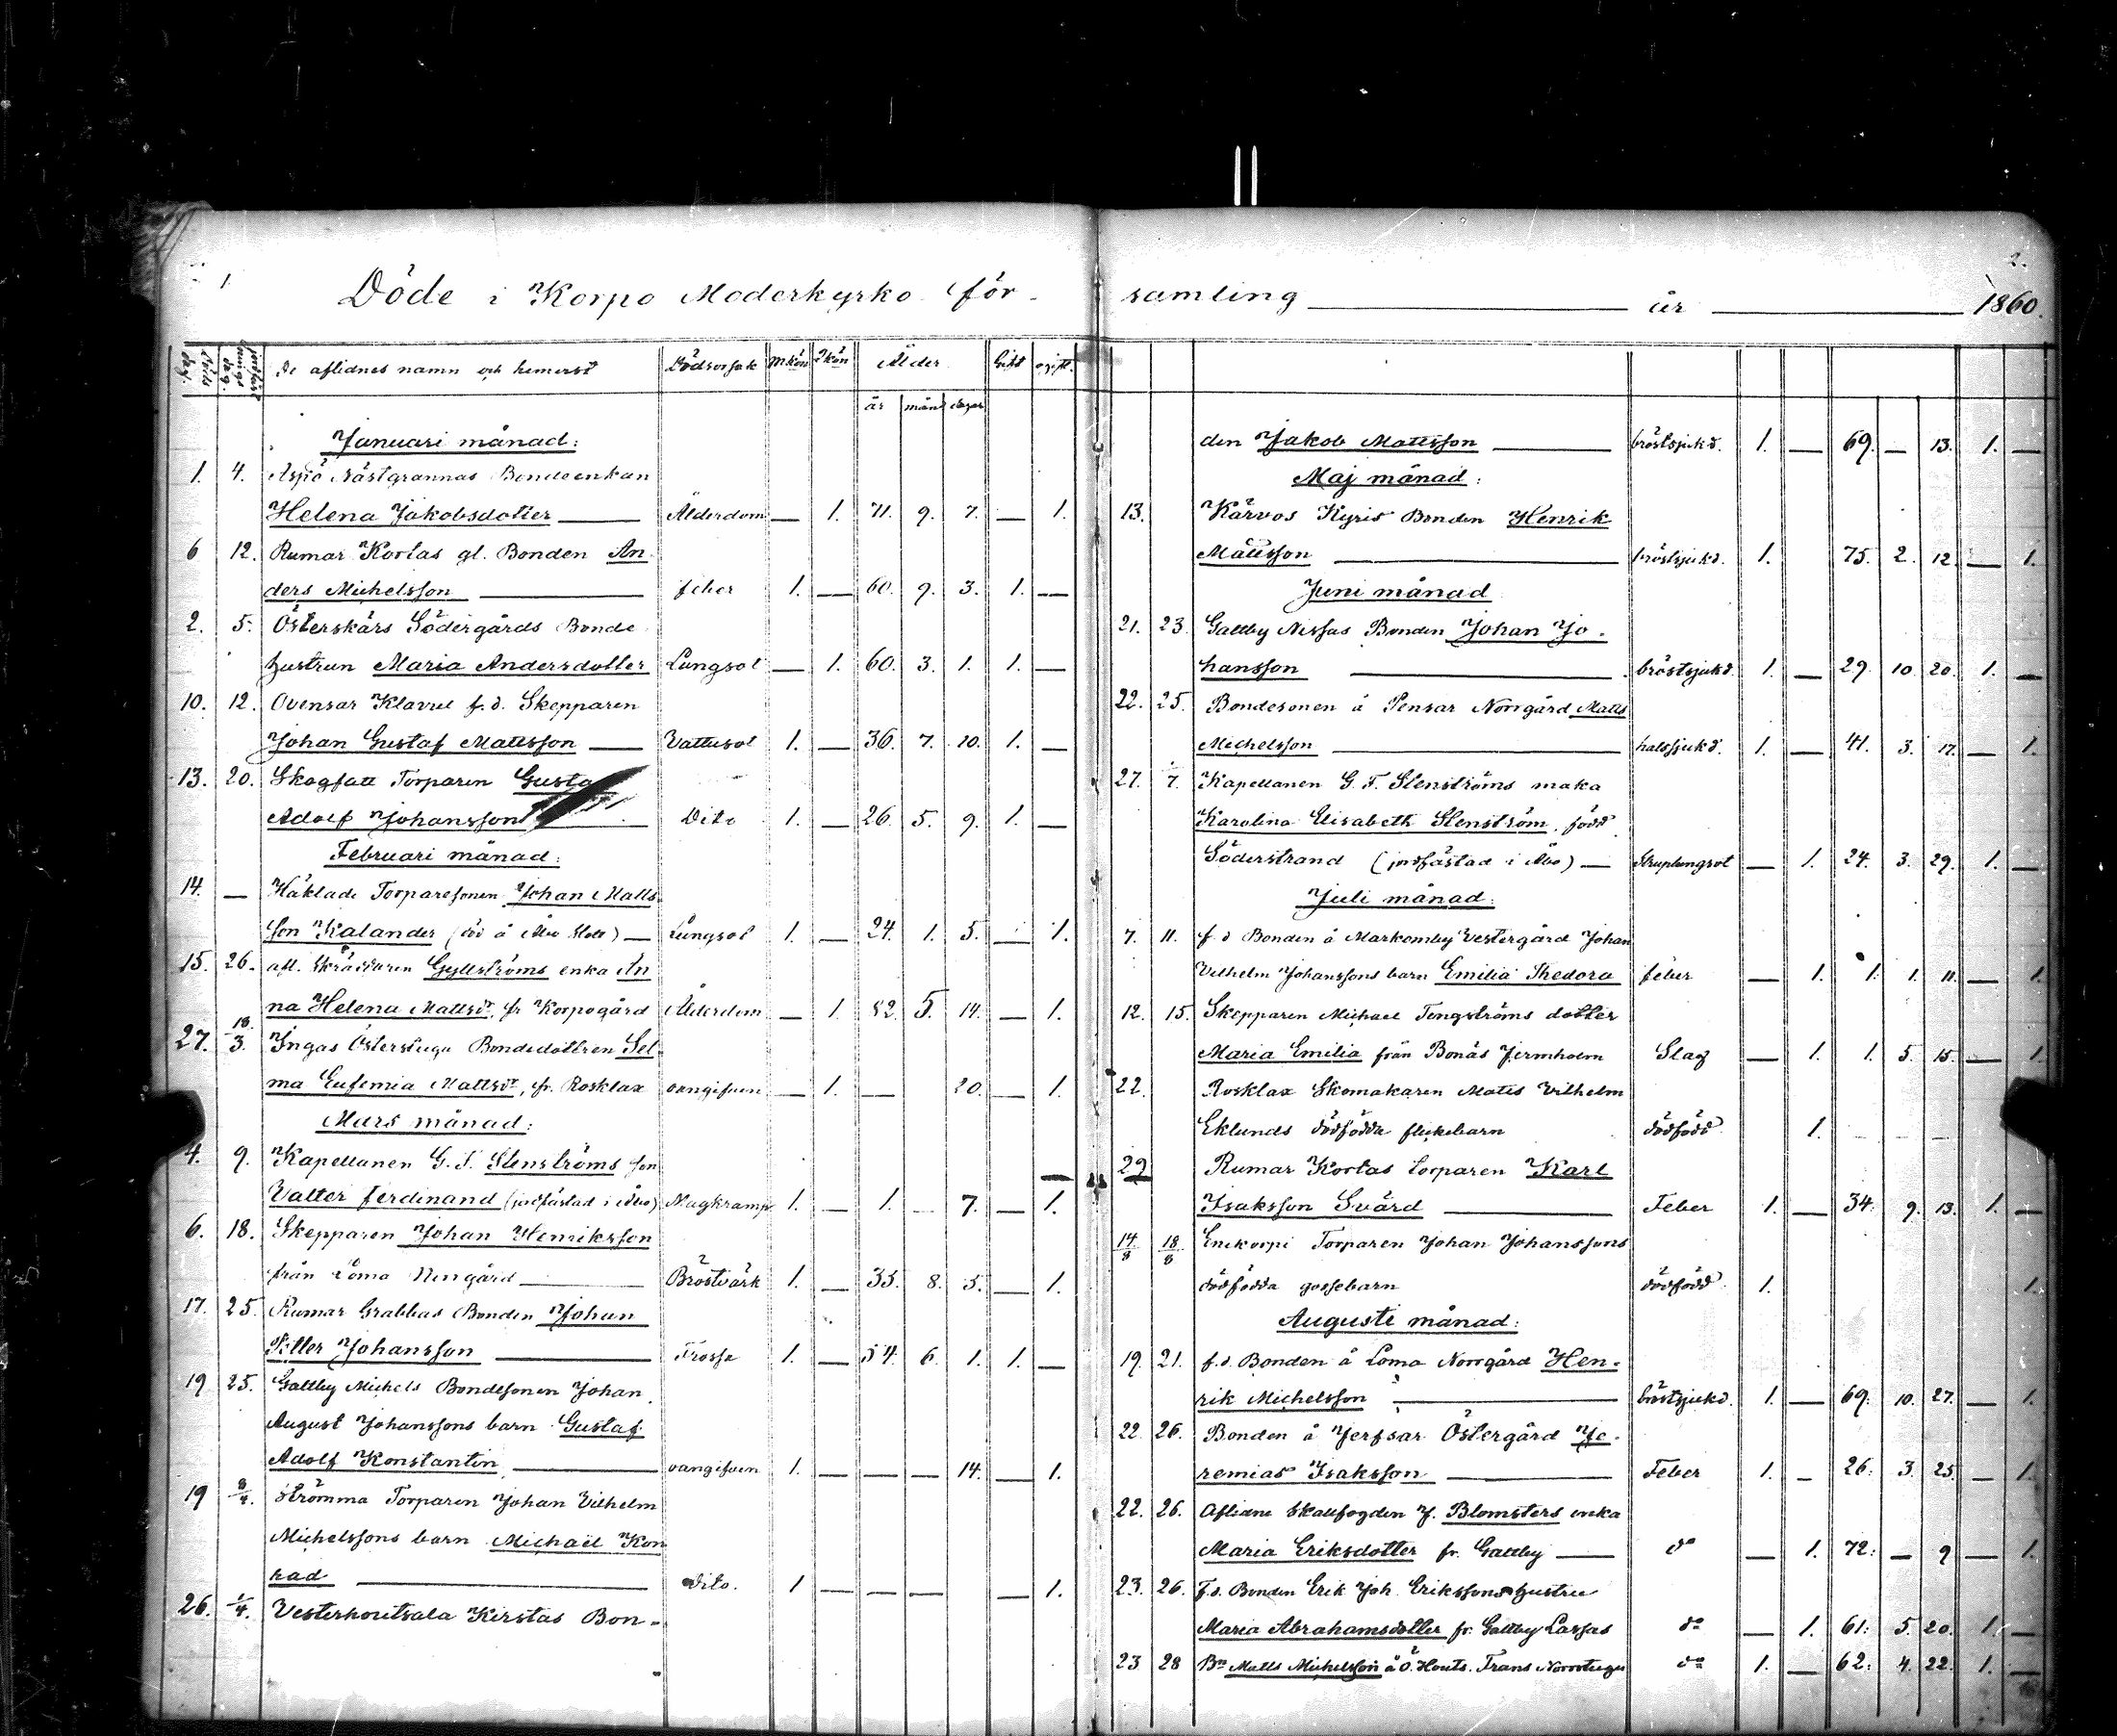 1.
Döde i Korpo Moderkyrko för-
De aflidnes namn och hemvist Dödsorsak Mkön Qkön Ålder Gift ogift.
år mån dagar
Januari månad:
1. 4. Aspö Nästgrannas Bondeenkan
Helena Jakobsdotter — Ålderdom — 1. 71. 9. 7. — 1.
6 12. Rumar Kortas gl. Bonden An
ders Michelsson — feber 1. — 60. 9. 3. 1. —
2. 5. Österskärs Södergårds Bonde
hustrun Maria Andersdotter Lungsot — 1. 60. 3. 1. 1. —
10. 12. Ovensar Klavus f.d. Skepparen
Johan Gustaf Mattsson — Vattusot 1. — 36. 7. 10. 1. —
13. 20. Skogfatt Torparen Gusta
Adolf Johansson — Dito 1. — 26. 5. 9. 1. —
Februari månad:
14. — Käklade Torparesonen Johan Matts
son Kalander (död å Åbo Slott) — Lungsot 1. — 24. 1. 5. — 1.
15. 26. afl. Skräddaren Gyllströms enka An
na Helena Mattsdr. fr Korpogård Ålderdom — 1. 82. 5. 14. — 1.
27. 18/3. Yngas Österstugu Bondedottren Sel
ma Eufemia Mattsdr, fr. Rosklax oangifven — 1. — 20. — 1.
Mars månad:
4. 9. Kapellanen G. F. Stenströms son
Valter Ferdinand (jordfästad i Åbo) Magkramp 1. — 1. — 7. — 1.
6. 18. Skepparen Johan Henriksson
från Loma Norrgård — Bröstvärk 1. — 35. 8. 5. — 1.
17. 25. Rumar Grabbas Bonden Johan
Petter Johansson — Frossa 1. — 54. 6. 1. 1. —
19 25. Galtby Michels Bondesonen Johan
August Johanssons barn Gustaf
Adolf Konstantin — oangifven 1. — — — 14. — 1.
19 8/4. Strömma Torparen Johan Vilhelm
Michelssons barn Michaël Kon
rad — dito. 1 — — — — 1.
26. 1/4. Vesterhoutsala Kirstas Bon-
2.
samling — år — 1860.
den Jakob Mattsson — bröstsjukd. 1. — 69. — 13. 1. —
Maj månad:
13. Kärvos Kyris Bonden Henrik
Mattsson — bröstsjukd. 1. 75. 2. 12. — 1.
Juni månad
21. 23. Galtby Nissas Bonden Johan Jo-
hansson — bröstsjukd. 1. — 29. 10 20. 1. —
22. 25. Bondesonen å Pensar Norrgård Matts
Michelsson — halssjukd. 1. — 41. 3. 17. — 1.
27. 7. Kapellanen G. F. Stenströms maka
Karolina Elisabeth Stenström, född
Söderstrand (jordfästad i Åbo) — Struplungsot — 1. 24. 3. 29. 1. —
Juli månad:
7. 11. f. d Bonden å Markomby Vestergård Johan
Vilhelm Johanssons barn Emilia Thedora feber — 1. 1. 1. 11. — 1.
12. 15. Skepparen Michael Tengströms dotter
Maria Emilia från Bonäs Jermholm Slag — 1. 1. 5. 15. — 1.
22. Rosklax Skomakaren Matts Vilhelm
Eklunds dödfödda flickebarn dödfödd 1. — — —
29 Rumar Kortas torparen Karl
Isaksson Svärd — Feber 1. — 34. 9. 13. 1. —
14/8 18/8 Enskorpi Torparen Johan Johanssons
dödfödda gossebarn dödfödd 1. 1.
Augusti månad:
19. 21. f. d. Bonden å Loma Norrgård Hen-
rik Michelsson — bröstsjukd. 1. — 69. 10. 27. — 1.
22. 26. Bonden å Jerfsar Östergård Je-
remias Isaksson — Feber 1. — 26. 3. 25. — 1.
22. 26. Aflidne Skallfogden J. Blomsters enka
Maria Eriksdotter fr. Galtby — do — 1. 72. — 9 — 1.
23. 26. F. d. Bonden Erik Joh. Erikssons hustru
Maria Abrahamsdotter fr. Galtby Lassas do — 1. 61. 5. 20. 1. —
23 28 Bn Matts Michelsson å Ö. Houts. Frans Norrstugu do 1. — 62. 4. 22. 1. —